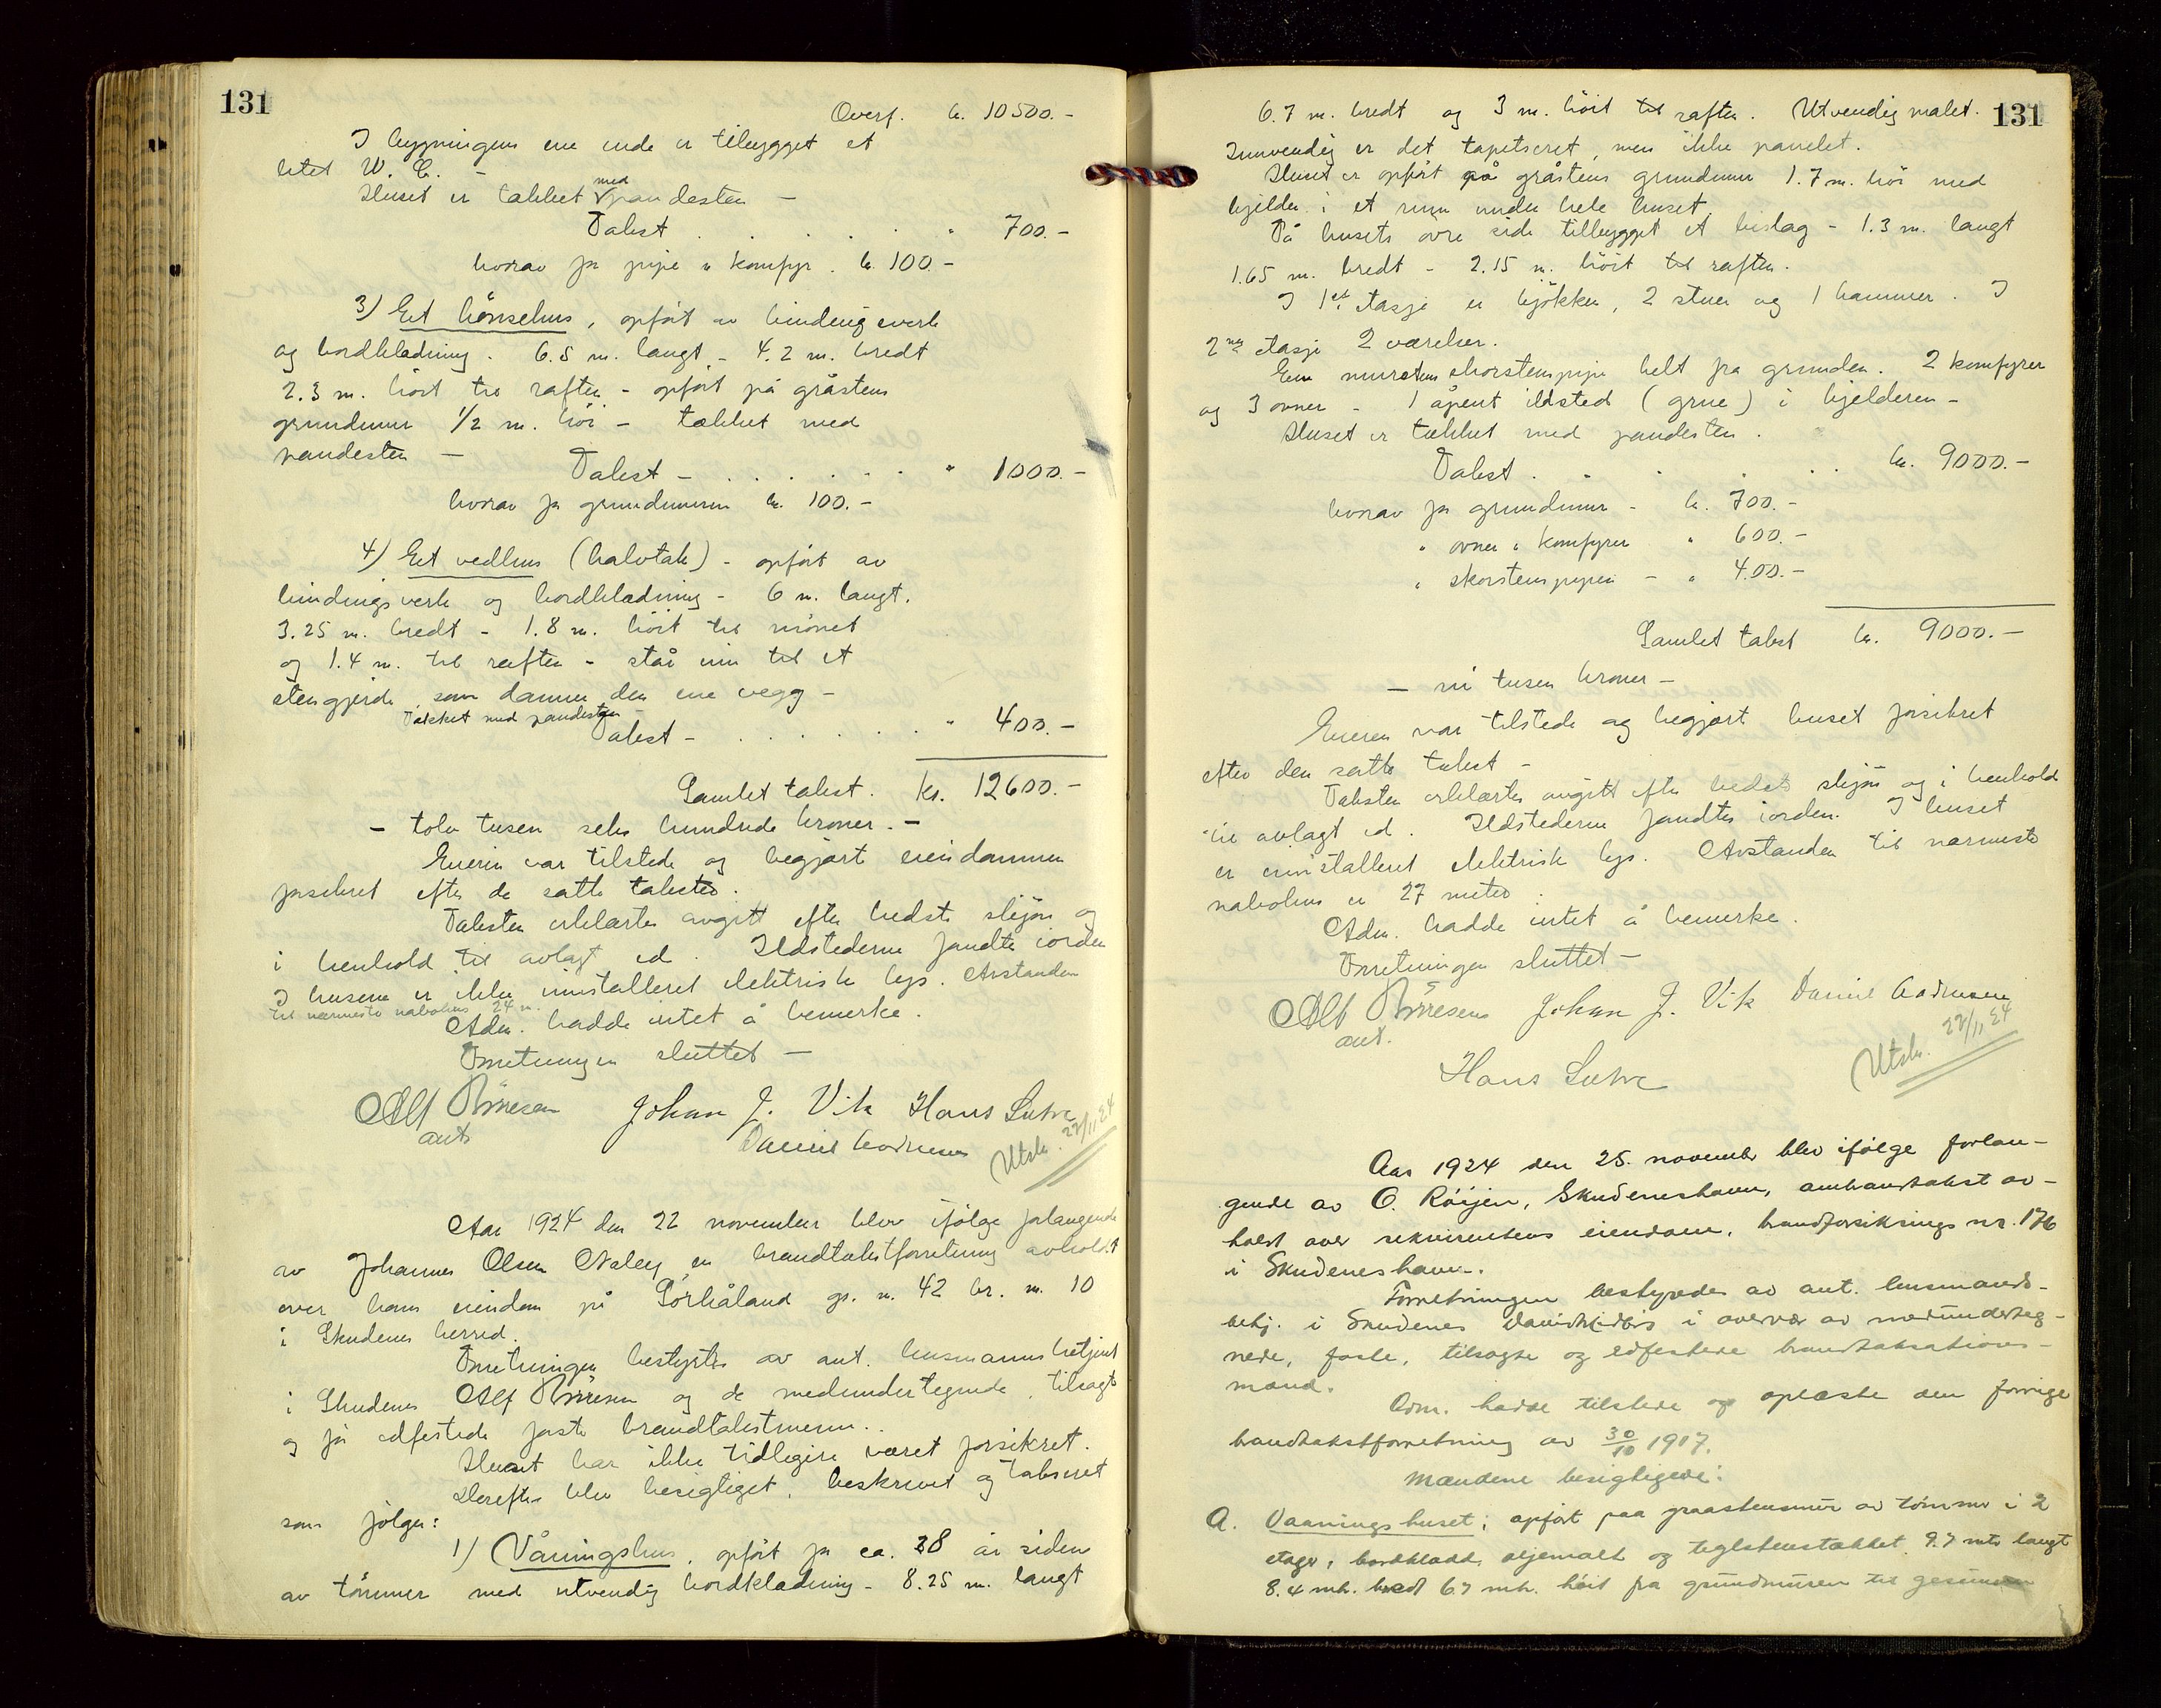 131
Overf. kr. 10500.-
I bygningens ene ende er tilbygget et
litet W. C. -
Huset er tækket med pandesten -
Takst . . . . . " 700.-
hvorav for pipe & komfyr. kr. 100.-
3) Et hönsehus, opfört av bindingsverk
og bordklædning. 6.5 m. langt - 4.2 m. bredt
2.3 m. höit til raften - opfört på gråstens
grundmur 1/2 m. höi - tækket med
pandesten -
Takst - . . . . . " 1000.-
hvorav for grundmuren kr. 100.-
4) Et vedhus (halvtak) - opfört av
bindingsverk og bordklædning - 6 m. langt.
3.25 m. bredt - 1.8 m. höit til mönet
og 1.4 m. til raften - står inn til et
stengjerde, som danner den ene vegg -
Tækket med pandesten -
Takst - . . . . . . " 400.-
Samlet takst. kr. 12600.-
- tolv tusen seks hundrede kroner. -
Eieren var tilstede og begjært eiendommen
forsikret efter de satte takster.
Taksten erklærtes avgitt efter bedste skjön og
i henhold til avlagt ed. Ildstederne fandtes iorden
I husene er ikke innstalleret elektrisk lys. Avstanden
til nærmeste nabohus 24 m.
Adm. hadde intet å bemerke.
Forretningen sluttet -
Alf
ant.
Johan J. Vik Hans
Daniel
Utskr. 22/11 24
Aar 1924 den 22 november blev ifölge forlangende
av Johannes Olsen en brandtakstforretning avholdt
over hans eiendom på Sörhåland gr. n. 42 br. n. 10
i Skudenes herred.
Forretningen bestyrtes av ant. lensmannsbetjent
i Skudenes Alf og de medundertegnede, tilsagte
og för edfestede faste brandtakstmenn.
Huset har ikke tidligere været forsikret.
Derefter blev besigtiget, beskrevet og taksert
som fölger:
1) Våningshus, opfört for ca. 28 år siden
av tömmer med utvendig bordklædning - 8.25 m. langt
131
6.7 m. bredt og 3 m. höit til raften. Utvendig malet.
Innvendig er det tapetseret, men ikke panelet.
Huset er opfört på gråstens grundmur 1.7 m. höi med
kjelder i et rum under hele huset.
På husets övre side tilbygget et bislag - 1.3 m. langt
1.65 m. bredt - 2.15 m. höit til raften.
I 1ste etasje er kjökken, 2 stuer og 1 kammer. I
2nen etasje 2 værelser.
Een murstens skorstenspipe helt fra grunden. 2 komfyrer
og 3 ovner - 1 åpent ildsted (grue) i kjelderen -
Huset er tækket med pandesten.
Takst . . . . . . kr. 9000.-
hvorav for grundmur - kr. 700.-
" ovner & komfyrer " 600.-
" skorstenspipen - " 400.-
Samlet takst kr. 9000.-
- ni tusen kroner -
Eieren var tilstede og begjært huset forsikret
efter den satte takst -
Taksten erklærtes avgitt efter bedste skjön og i henhold
til avlagt ed. Ildstederne fandtes iorden. I huset
er innstalleret elektrisk lys. Avstanden til nærmeste
nabohus er 27 meter.
Adm. hadde intet å bemerke.
Forretningen sluttet -
Alf Johan J. Vik Daniel
ant.
Hans
Utskr. 22/11 24
Aar 1924 den 25. november blev ifölge forlan-
gende av O. Röijen, Skudeneshavn, ombrandtakst av-
holdt over rekvirentens eiendom, brandforsikrings nr. 176
i Skudeneshavn.
Forretningen bestyredes av ant. lensmands-
betj. i Skudenes i overvær av medunderteg-
nede, faste, tilsagte og edfestede brandtaksations-
mænd.
Adm. hadde tilstede og oplæste den forrige
brandtakstforretning av 30/10 1917.
Mændene besigtigede:
A. Vaaningshuset; opfört paa graastensmur av tömmer i 2
etager, bordklædt, oljemalt og teglstenstækket. 9.7 mtr. langt
8.4 mtr. bredt 6.7 mtr. höit fra grundmuren til gesimsen